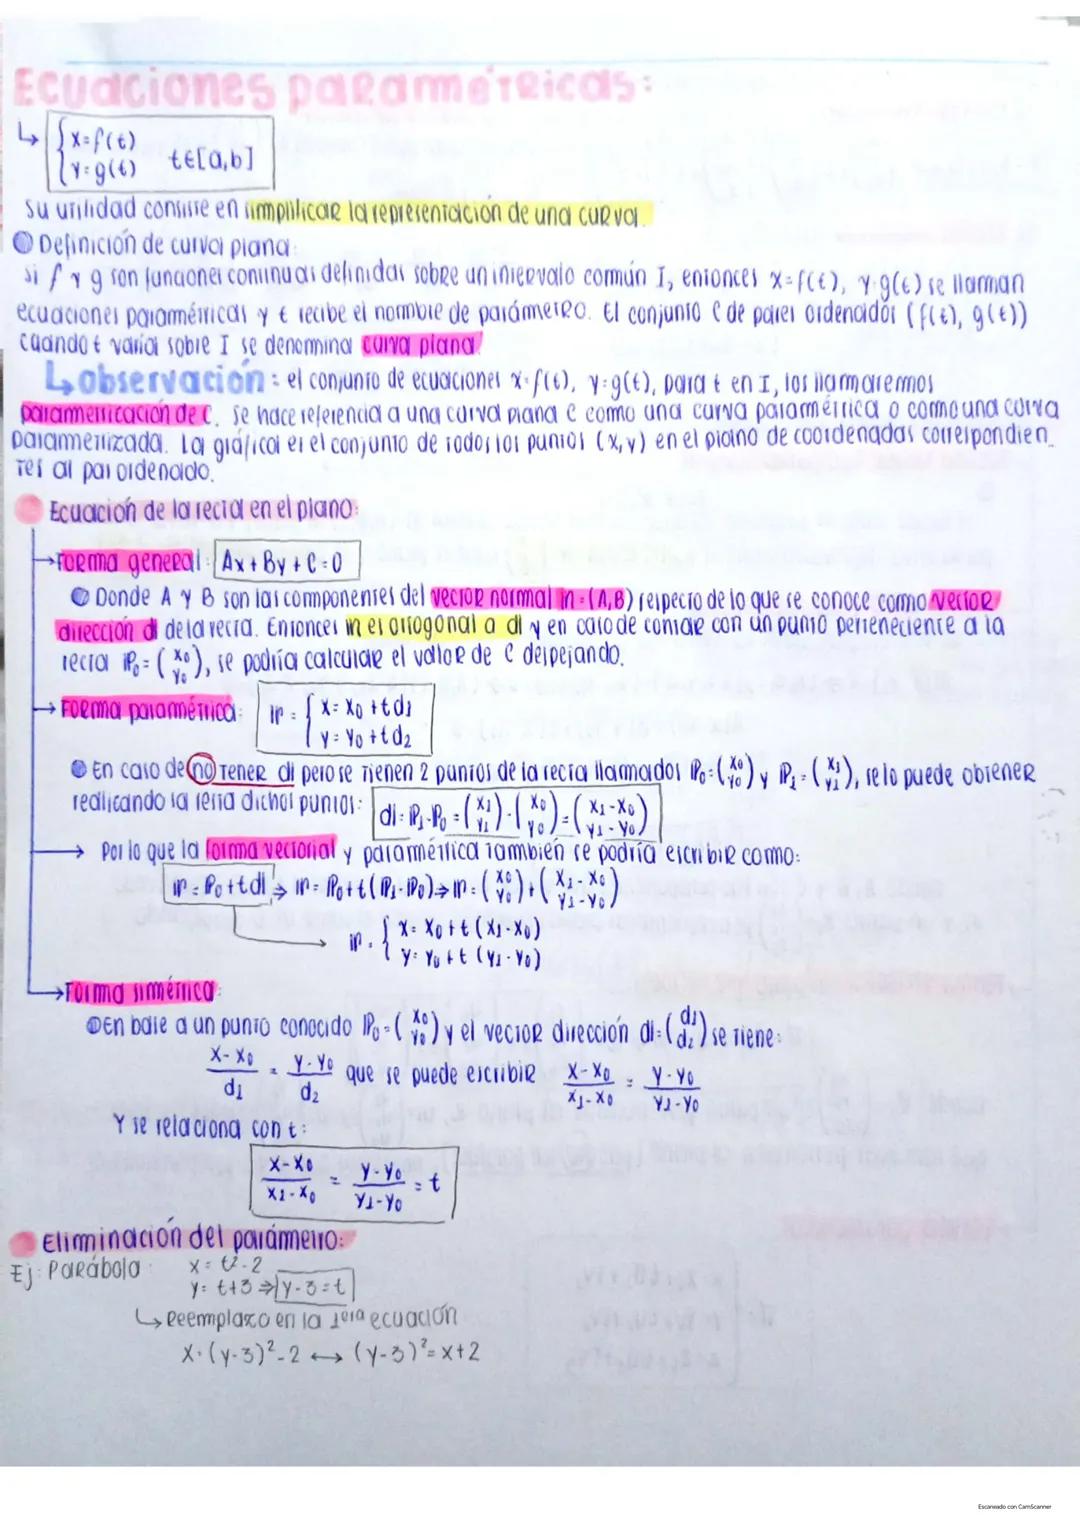 Ecuaciones paramétricas:
↳ { x=f(t)
y=g(t) t∈[a,b]
Su utilidad consiste en simplificar la representación de una curva.
Definición de curva plana:
Si f y g son funciones continuas definidas sobre un intervalo común I, entonces x=f(t), y=g(t) se llaman
ecuaciones paramétricas y t recibe el nombre de parámetro. El conjunto C de pares ordenados (f(t), g(t))
cuando t varía sobre I se denomina curva plana.
↳ observación: el conjunto de ecuaciones x=f(t), y=g(t), para t en I, los llamaremos
parametrización de C. Se hace referencia a una curva plana C como una curva paramétrica o como una curva
parametrizada. La gráfica es el conjunto de todos los puntos (x,y) en el plano de coordenadas correspondien_
tes al par ordenado.
Ecuación de la recta en el plano:
→ Forma general: Ax+By+C=0
Donde A y B son las componentes del vector normal 𝕟=(A,B) respecto de lo que se conoce como vector
dirección 𝕕 de la recta. Entonces 𝕟 es ortogonal a 𝕕 y en caso de contar con un punto perteneciente a la
recta ℙ₀=(x₀ y₀), se podría calcular el valor de C despejando.
→ Forma paramétrica: 𝕣 = { x= x₀ + td₁
y= y₀ + td₂
En caso de no tener 𝕕 pero se tienen 2 puntos de la recta llamados ℙ₀=(x₀ y₀) y ℙ₁=(x₁ y₁), se lo puede obtener
realizando la resta dichos puntos: 𝕕=ℙ₁-ℙ₀=(x₁ y₁)-(x₀ y₀)=(x₁-x₀ y₁-y₀)
→ Por lo que la forma vectorial y paramétrica también se podría escribir como:
𝕣=ℙ₀+t𝕕 → 𝕣=ℙ₀+t(ℙ₁-ℙ₀)⇒𝕣=(x₀ y₀)+(x₁-x₀ y₁-y₀)
𝕣= { x= x₀+t(x₁-x₀)
y= y₀+t(y₁-y₀)
→ Forma simétrica:
En base a un punto conocido ℙ₀=(x₀ y₀) y el vector dirección 𝕕=(d₁ d₂) se tiene:
(x-x₀)/d₁ = (y-y₀)/d₂ que se puede escribir (x-x₀)/(x₁-x₀) = (y-y₀)/(y₁-y₀)
Y se relaciona con t:
(x-x₀)/(x₁-x₀) = (y-y₀)/(y₁-y₀) = t
Eliminación del parámetro:
Ej: Parábola: x= t²-2
y= t+3 ⇒ y-3=t
↳ Reemplazo en la 1era ecuación
x=(y-3)²-2 ⟷ (y-3)²=x+2
Escaneado con CamScanner